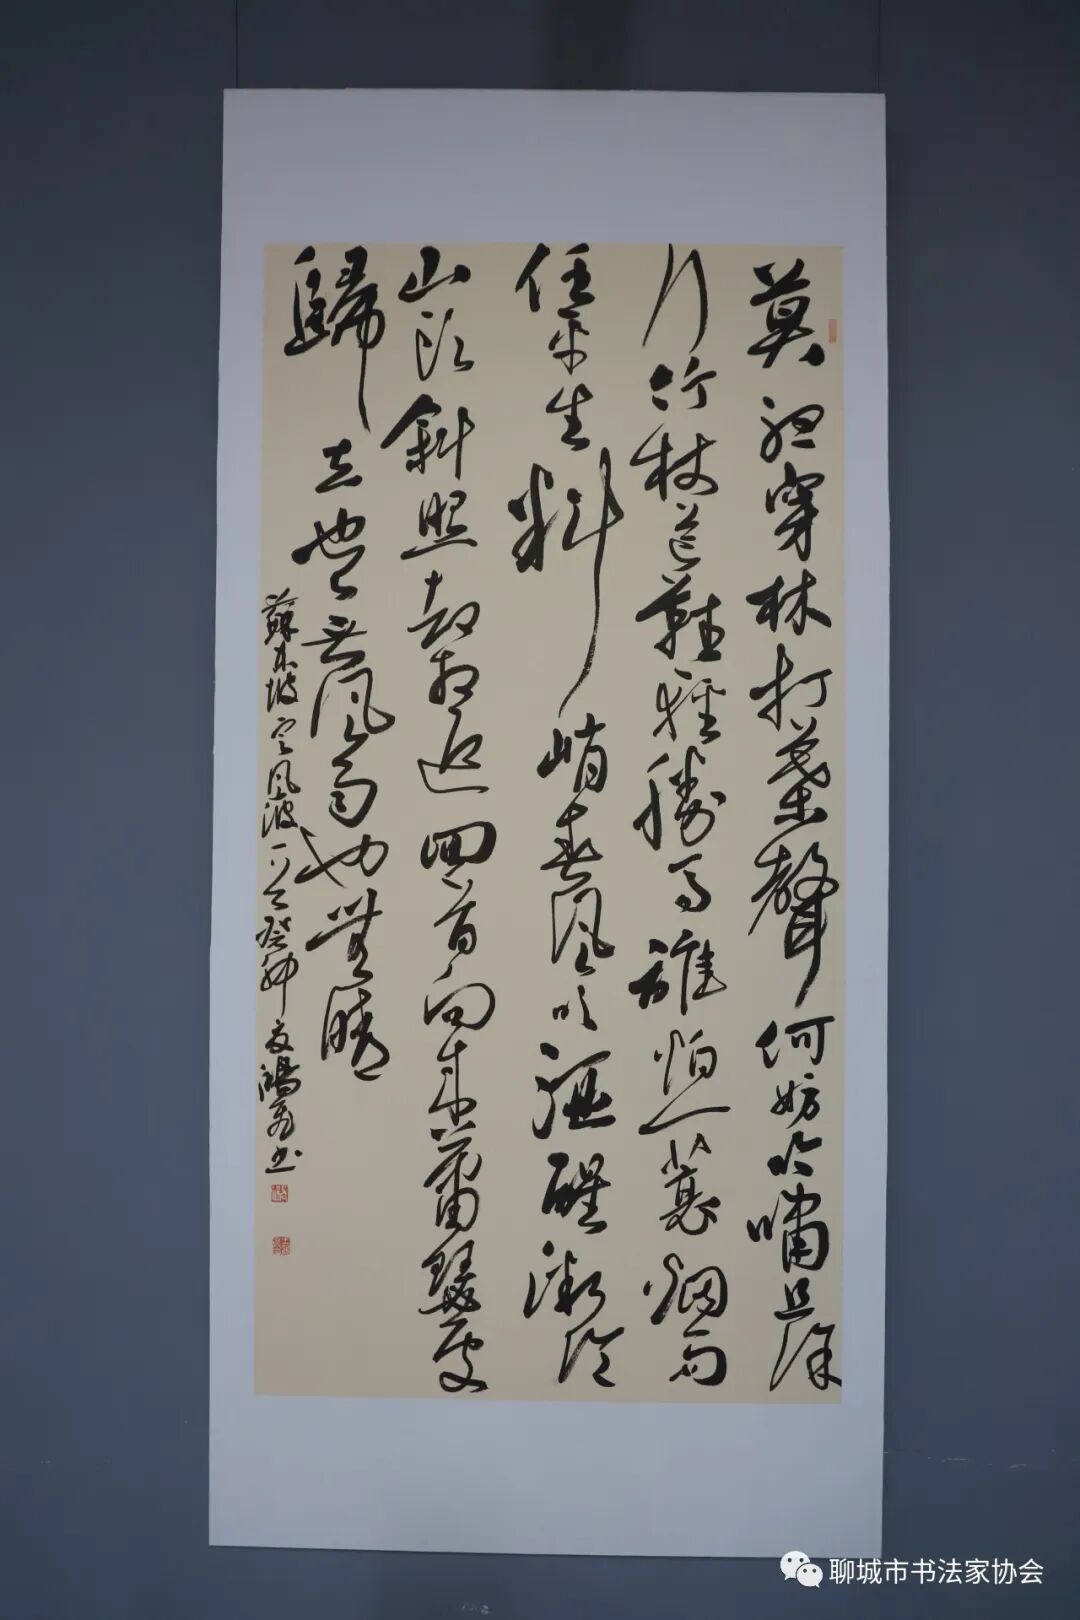 莫聽穿林打葉聲何妨吟嘯且徐
行竹杖芒鞋輕勝馬誰怕一蓑烟雨
任平生料峭春風吹酒醒微冷
山頭斜照却相迎回首向來蕭瑟處
歸去也无風雨也無晴
蘇東坡定風波一首癸卯夏鴻書
聊城市书法家协会